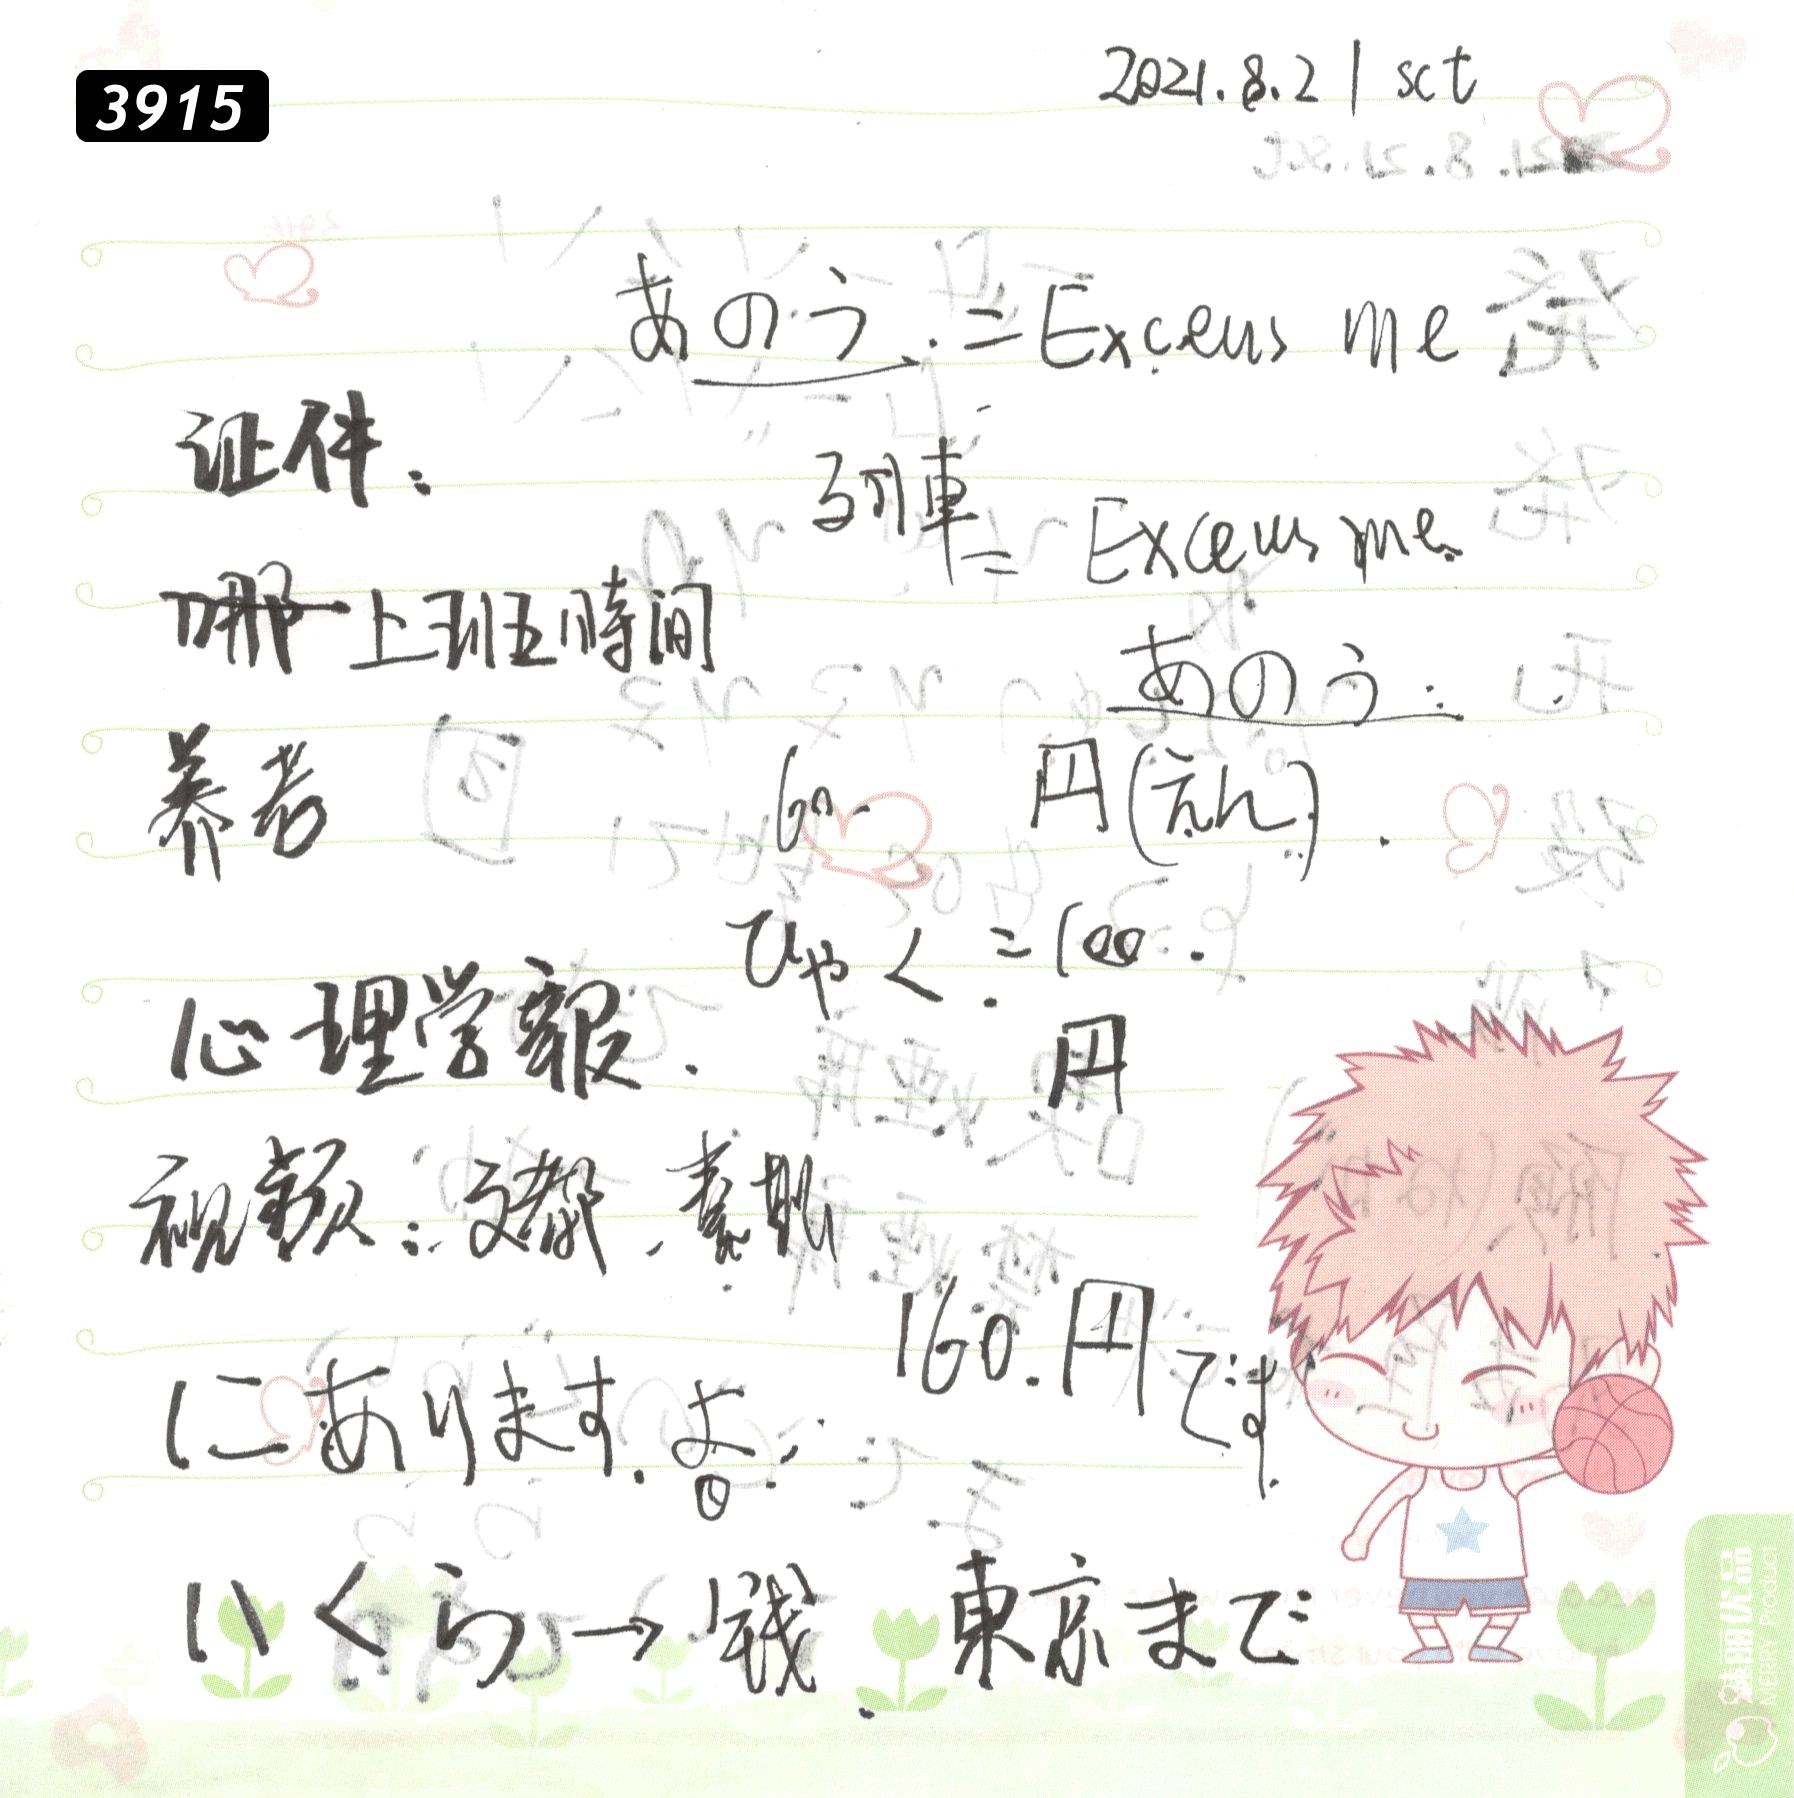 3915
2021.8.21 sct
あのう.=Exceus me
证件:
列車= Exceus me.
哪 上班時間
あのう:
养老
60. 円(えん).
ひゃく.=100.
円
心理学報.
視頻:文都.
160.円です.
にあります.よ.
いくら→钱 東京まで
MERRY Product